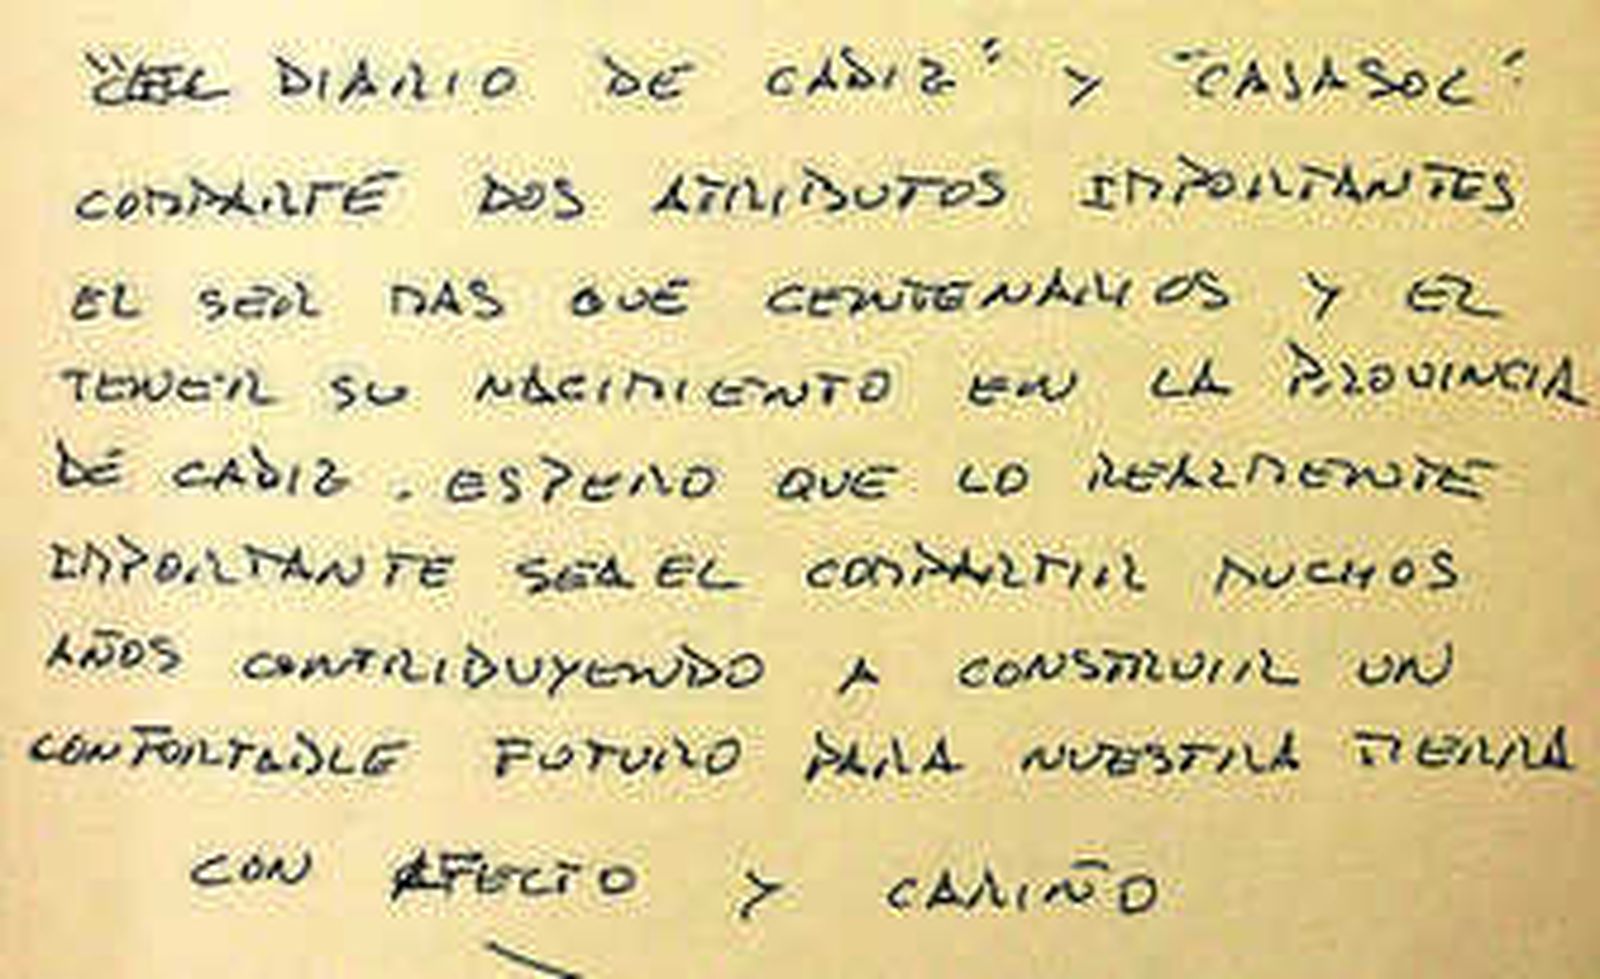 "EL DIARIO DE CADIZ" Y "CASASOL"
COMPARTE DOS ATRIBUTOS IMPORTANTES
EL SER MAS QUE CENTENARIOS Y EL
TENER SU NACIMIENTO EN LA PROVINCIA
DE CADIZ. ESPERO QUE LO REALMENTE
IMPORTANTE SEA EL COMPARTIR MUCHOS
AÑOS CONTRIBUYENDO A CONSTRUIR UN
CONFORTABLE FUTURO PARA NUESTRA TIERRA
CON AFECTO Y CARIÑO